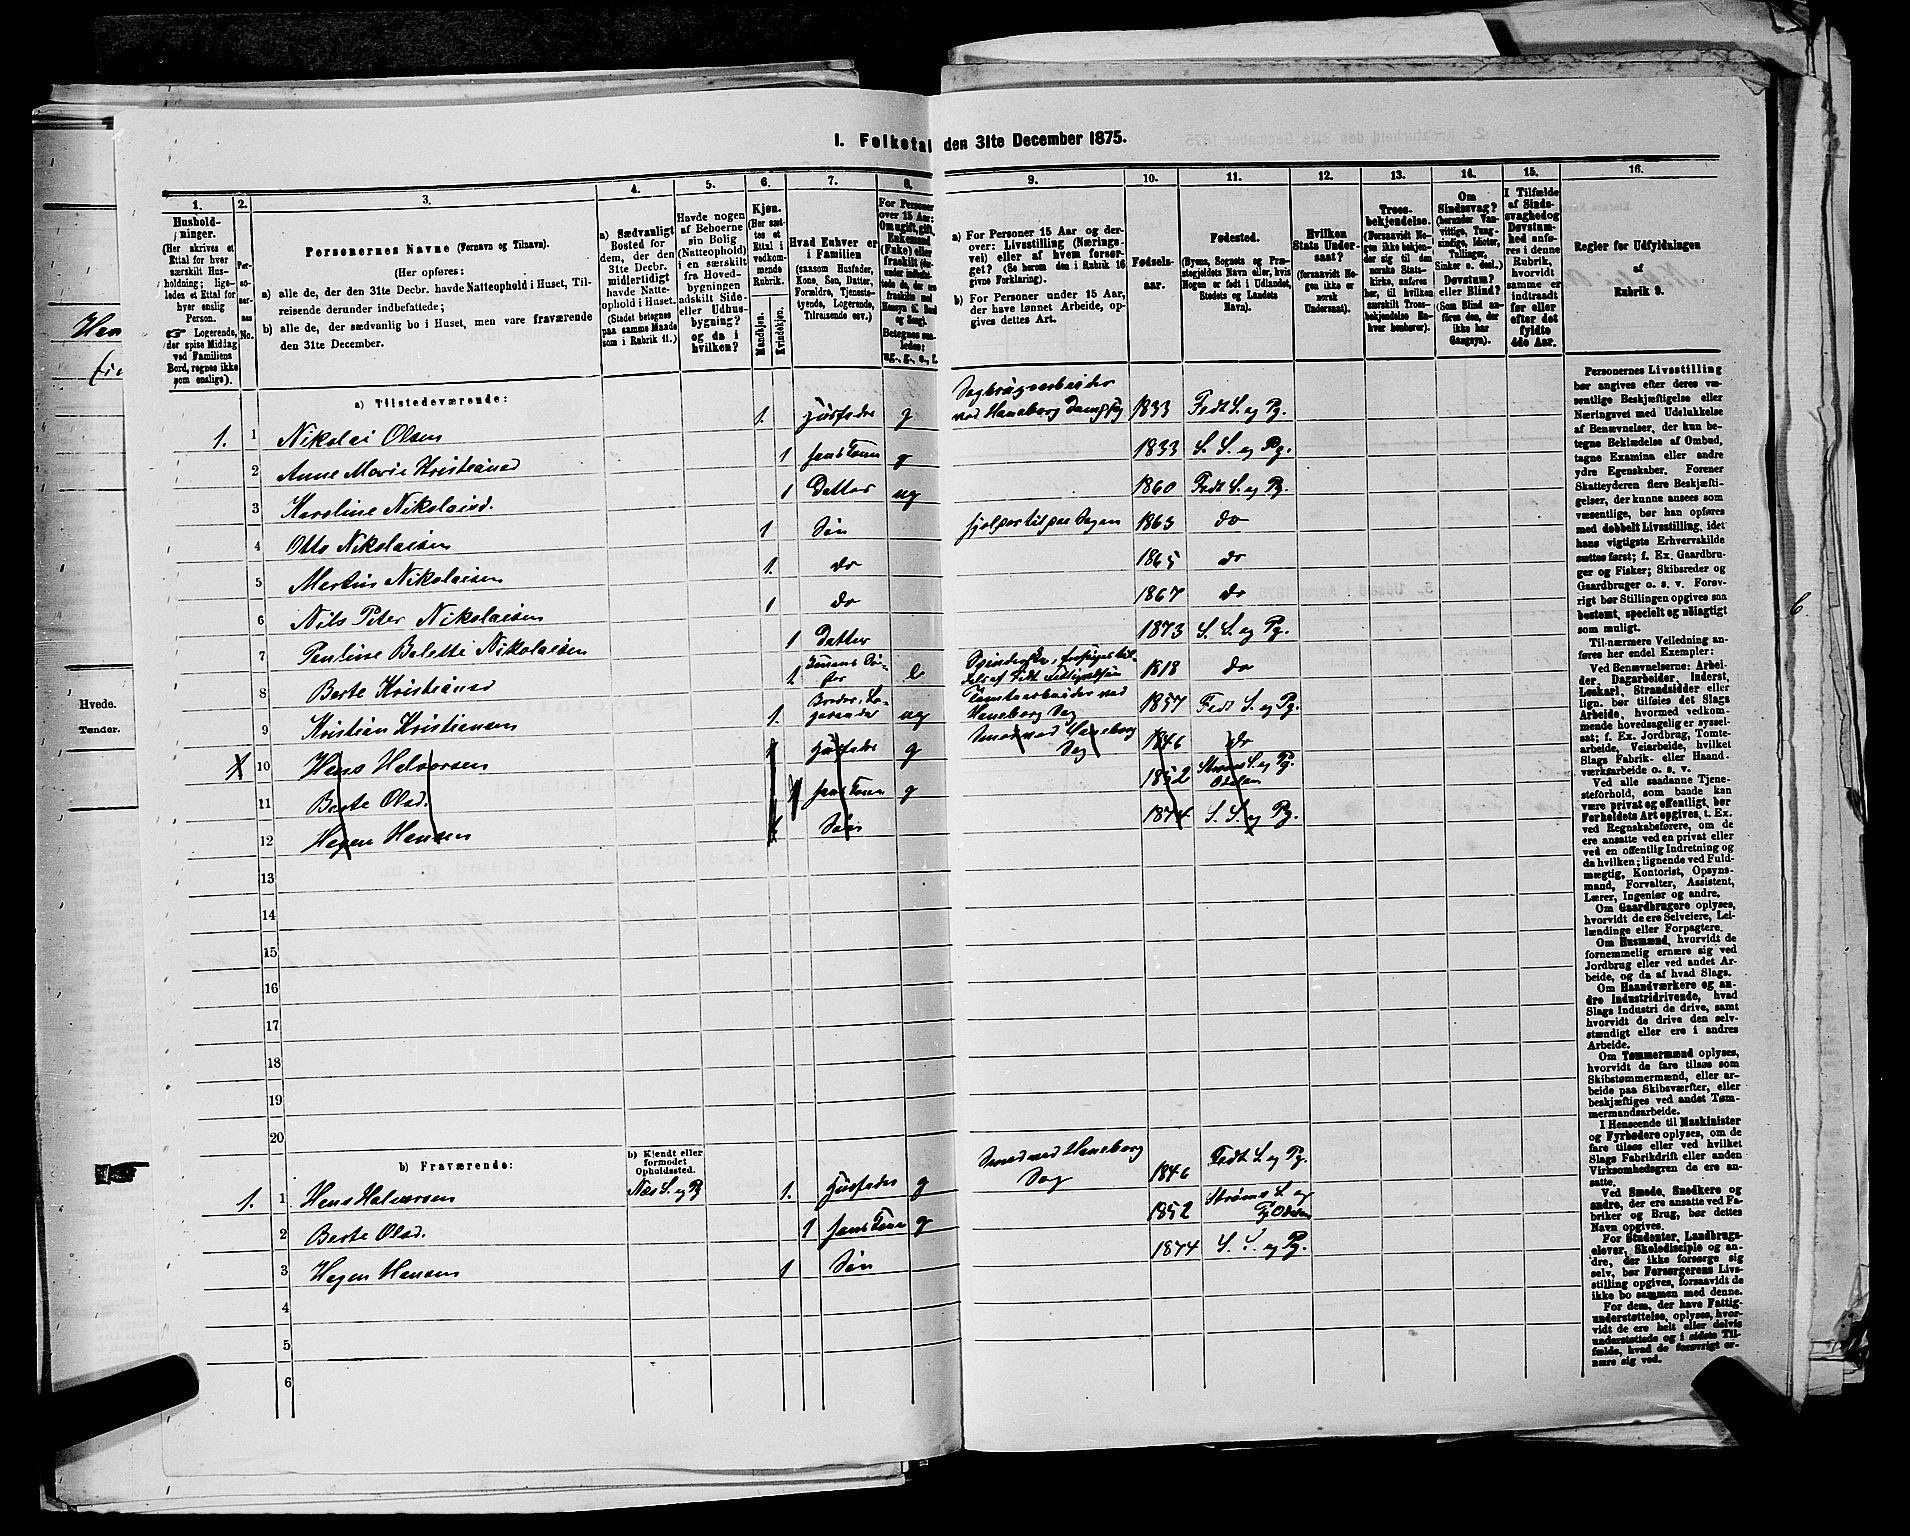 I. Folketal den 31te December 1875.
1. 2. 3. 4. 5. 6. 7. 8. 9. 10. 11. 12. 13. 14. 15. 16.
Hushold-
ninger.
(Her skrives et
Ettal for hver
særskilt Hus-
holdning; lige-
ledes et Ettal for
hver enslig
Person.
Logerende,
der spise Middag
ved Familiens
Bord, regnes ikke
som enslige).
Per-
so-
ner-
nes
No.
Personernes Navne (Fornavn og Tilnavn).
(Her opføres:
a) alle de, der den 31te Decbr. havde Natteophold i Huset, Til-
reisende derunder indbefattede;
b) alle de, der sædvanlig bo i Huset, men vare fraværende
den 31te December.
a) Sædvanligt
Bosted for
dem, der den
31te Decbr.
midlertidigt
havde Natte-
ophold i Huset.
(Stedet betegnes
paa samme Maade
som i Rubrik 11.)
Havde nogen
af Beboerne
sin Bolig
(Natteophold)
i en særskilt
fra Hoved-
bygningen
adskilt Side-
eller Udhus-
bygning?
og da i
hvilken?
Kjøn.
(Her sæt-
tes et
Ettal i
vedkom-
mende
Rubrik.
Mandkjøn.
Kvindekjøn.
Hvad Enhver er
i Familien
(saasom Husfader,
Kone, Søn, Datter,
Forældre, Tjeneste-
tyende, Logerende,
Tilreisende osv.)
For Personer
over 15 Aar:
Om ugift, gift,
Enkemand
(Enke) eller
fraskilt
Betegnes saa-
ledes:
ug., g., e., f.
a) For Personer 15 Aar og der-
over: Livsstilling (Nærings-
vei) eller af hvem forsør-
get? (Se herom den i Rubrik 16
givne Forklaring).
b) For Personer under 15 Aar,
der have lønnet Arbeide, op-
gives dettes Art.
Fødsels-
aar.
Fødested.
(Byens, Sognets og Præ-
stegjeldets Navn eller, hvis
Nogen er født i Udlandet,
Stedets og Landets
Navn).
Hvilken
Stats Under-
saat?
(forsaavidt No-
gen ikke er
norsk
Undersaat).
Troes-
bekjendelse.
(Forsaavidt No-
gen ikke bekjen-
der sig til den
norske Stats-
kirke, anføres
her, til hvilken
særskilt Troes-
bekjendelse En-
hver henhører).
Om
Sindssvag?
(herunder Van-
vittige, Tung-
sindige, Idioter,
Tullinger,
Sinker o. desl.)
Døvstum?
eller Blind?
(Som Blind an-
føres den, der
ikke har
Gangsyn).
I Tilfælde
af Sinds-
svaghed og
Døvstum-
hed anfø-
res i denne
Rubrik,
hvorvidt
samme er
indtraadt
før eller
efter det
fyldte
4de Aar.
Regler for Udfyldningen
af
Rubrik 9.
a) Tilstedeværende:
1. 1 Nikolai Olsen 1. Husfader g Sagbrugsarbeider ved Haneborg Dampsag 1833 Fedt S. og Pg.
2 Anne Marie Kristiansd 1 hans Kone g 1833 S. S. og Pg.
3 Karoline Nikolaisd. 1 Datter ug 1860 Fedt S. og Pg.
4 Otto Nikolaisen 1 Søn hjælper til paa Sagen 1863 do
5 Martin Nikolaisen 1. do 1865 do
6 Nils Peter Nikolaisen 1 do 1867 do
7 Pauline Balette Nikolaisen 1 Datter 1873 S. S. og Pg.
8 Berte Kristiansd 1 Konens Sø-
ster e 1818 do
9 Kristian Kristiansen 1. Broder, Lo-
gerende ug Tomtearbeider ved
Haneborg Sag 1857 Fedt S. og Pg.
X 10 Hans Halvorsen 1 Husfader g Smed ved Haneborg
Sag 1846 do
11 Berte Olsd. 1 hans Kone g 1852 Strøms S. og Pg.
Odalen
12 Hagen Hansen 1 Søn 1874 S. S. og Pg.
13
14
15
16
17
18
19
20
b) Fraværende:
b) Kjendt eller
formodet
Opholdssted.
1. 1 Hans Halvorsen Næs S. og Pg 1. Husfader g Smed ved Haneborg
Sag 1846 Fedt S. og Pg.
2 Berte Olsd. 1 hans Kone g 1852 Strøms S. og
Pg Odalen
3 Hagen Hansen 1 Søn 1874 S. S. og Pg.
4
5
6
Personernes Livsstilling
bør angives efter deres væ-
sentlige Beskjæftigelse eller
Næringsvei med Udelukkelse
af Benævnelser, der kun be-
tegne Beklædelse af Ombud,
tagne Examina eller andre
ydre Egenskaber. Forener
Skatteyderen flere Beskjæfti-
gelser, der kunne ansees som
væsentlige, bør han opføres
med dobbelt Livsstilling, idet
hans vigtigste Erhvervskilde
sættes først; f. Ex. Gaardbru-
ger og Fisker; Skibsreder og
Gaardbruger o. s. v. Forøv-
rigt bør Stillingen opgives saa
bestemt, specielt og nøiagtigt
som muligt.
Til nærmere Veiledning an-
føres her endel Exempler:
Ved Benævnelserne: Arbei-
der, Dagarbeider, Inderst,
Løskarl, Strandsidder eller
lign. bør tilføies det Slags
Arbeide, hvormed vedkom-
mende hovedsagelig er syssel-
sat; f. Ex. Jordbrug, Tomte-
arbeide, Veiarbeide, hvilket
Slags Fabrik- eller Haand-
værksarbeide o. s. v.
Ved alle saadanne Tjene-
steforhold, som baade kan
være privat og offentligt, bør
Forholdets Art opgives, t. Ex.
ved Regnskabsførere, om de
ere ansatte ved en privat eller
ved en offentlig Indretning og
da hvilken; lignende ved Fuld-
mægtig, Kontorist, Opsyns-
mand, Forvalter, Assistent,
Lærer, Ingeniør og andre.
Om Gaardbrugere oplyses,
hvorvidt de ere Selveiere, Lei-
lændinge eller Forpagtere.
Om Husmænd, hvorvidt de
fornemmelig ernære sig ved
Jordbrug eller ved andet Ar-
beide, og da af hvad Slags.
Om Haandværkere og an-
dre Industridrivende, hvad
Slags Industri de drive, samt
hvorvidt de drive den selv-
stændigt eller ere i andres
Arbeide.
Om Tømmermænd oplyses,
hvorvidt de fare tilsøs som
Skibstømmermænd, eller ar-
beide paa Skibsværfter, eller
beskjæftiges ved andet Tøm-
mermandsarbeide.
I Henseende til Maskinister
og Fyrbødere oplyses, om de
fare tilsøs eller ved hvilket
Slags Fabrikdrift eller anden
Virksomhedsgren de ere an-
satte.
Ved Smede, Snedkere og
andre, der ere ansatte ved Fa-
briker og Brug, bør dettes
Navn opgives.
For Studenter, Landbrugs-
elever, Skoledisciple og an-
dre, der ikke forsørge sig
selv, bør Forsørgerens Livs-
stilling opgives, forsaavidt de
ikke bo sammen med denne.
For dem, der have Fattig-
understøttelse, oplyses, hvor-
vidt de ere helt eller delvis
understøttede og i sidste Til-
fælde, hvad de forøvrigt er-
nære sig ved.
Hvede.
Tønder.
6